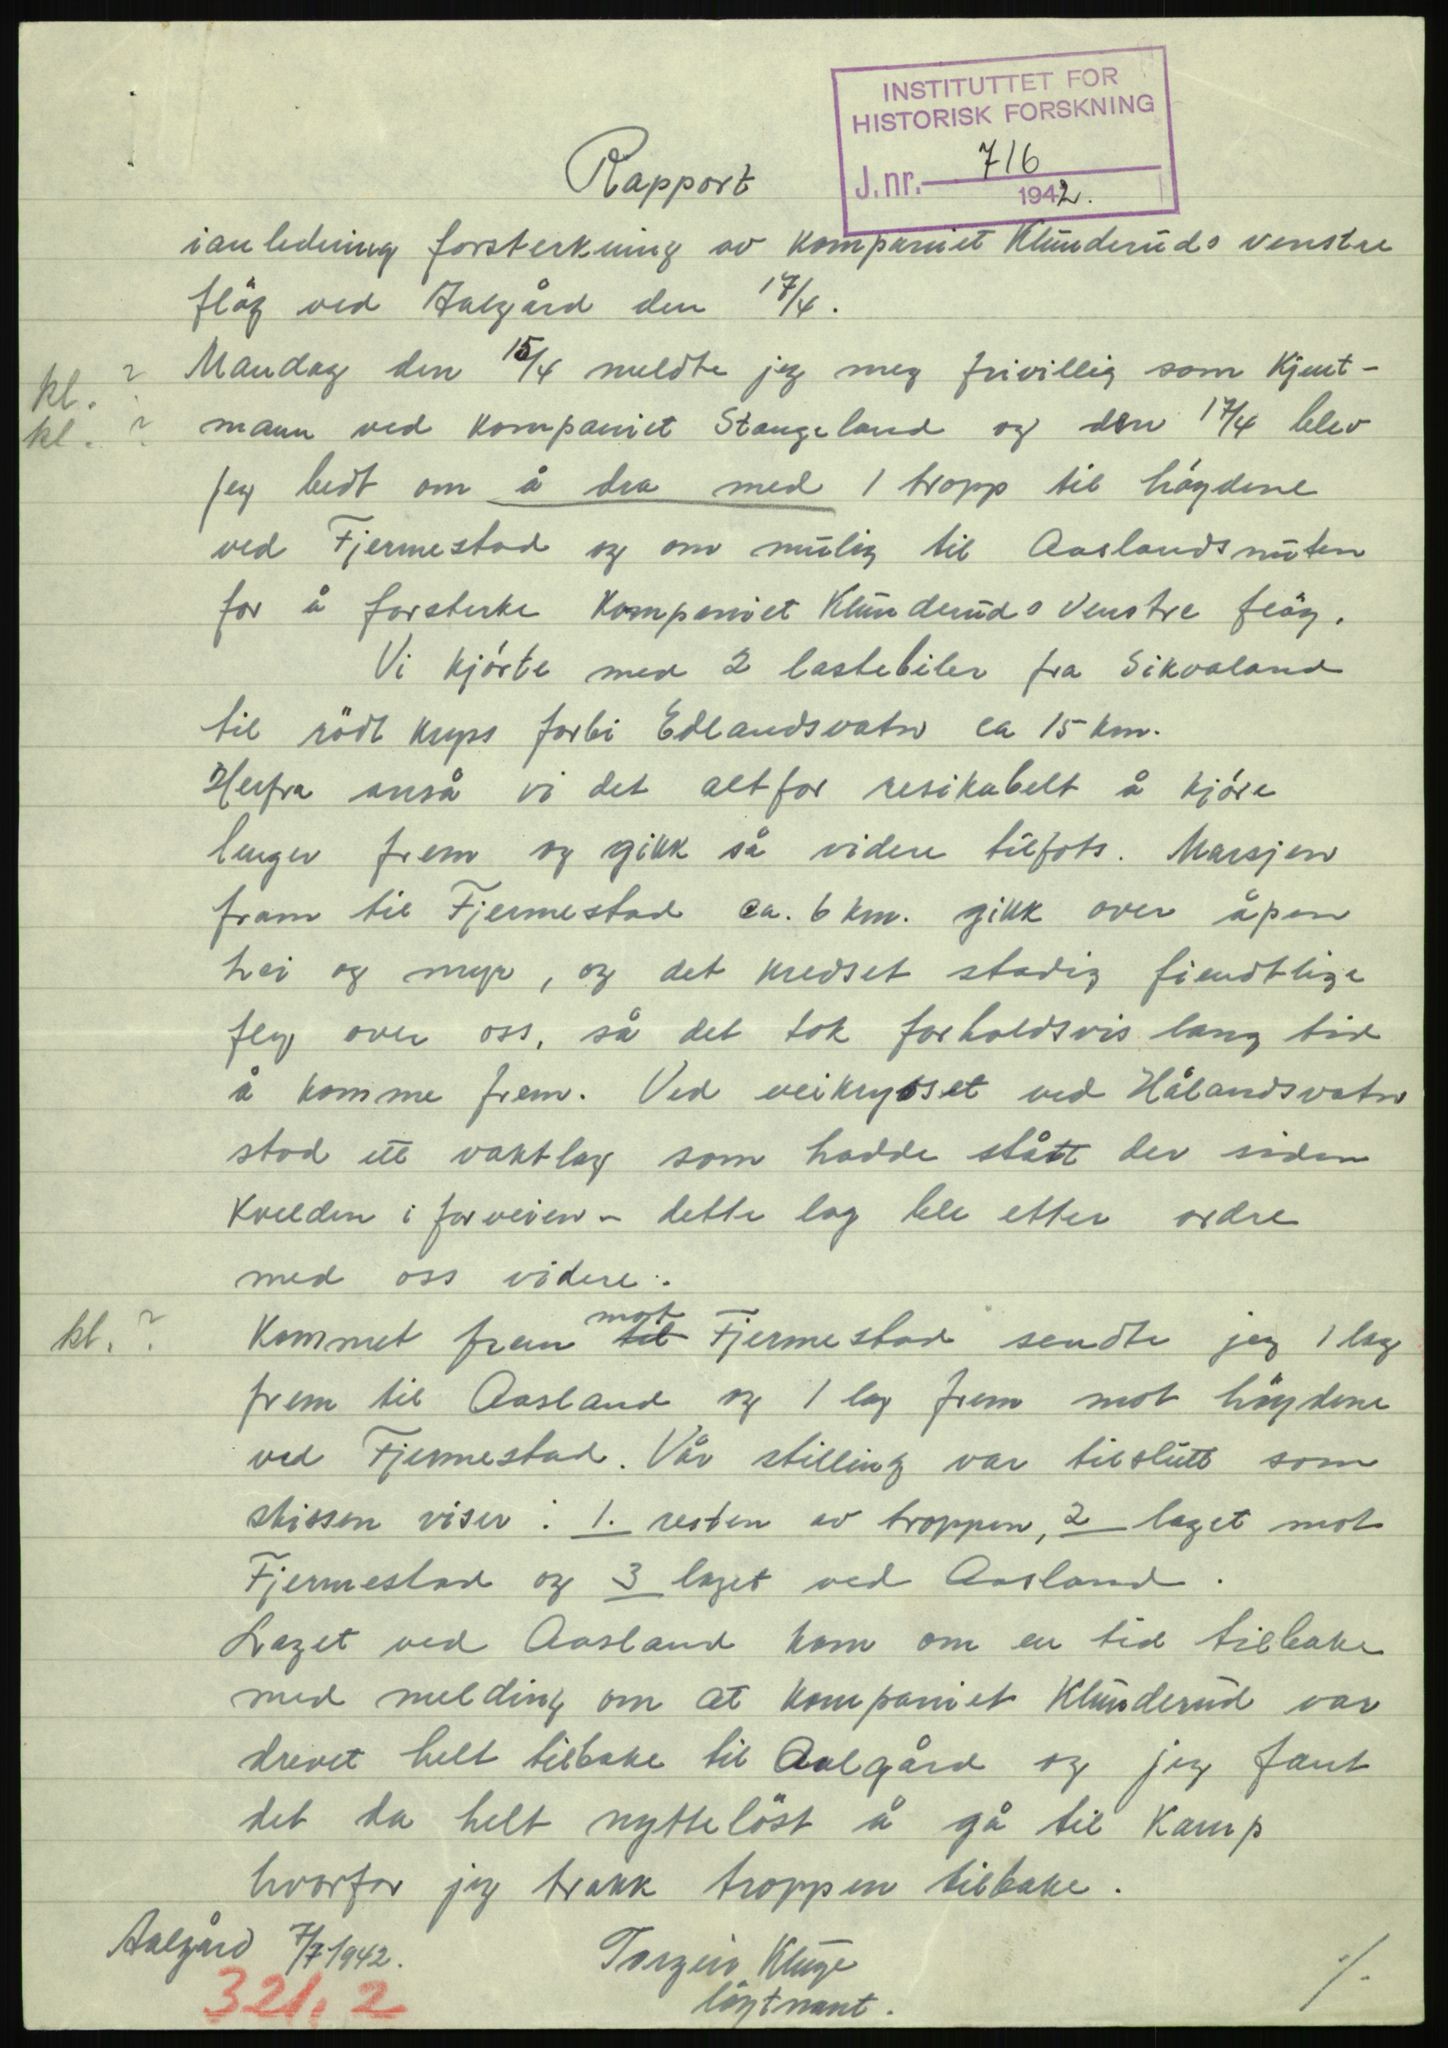 INSTITUTTET FOR
HISTORISK FORSKNING
J. nr. 716
1942.
Rapport
ianledning forsterkning av kompaniet Klunderuds venstre
fløy ved Aalgård den 17/4.
kl. ? Mandag den 15/4 meldte jeg meg frivillig som kjent-
kl. ? mann ved kompaniet Stangeland og den 17/4 blev
jeg bedt om å dra med 1 tropp til høydene
ved Fjermestad og om mulig til Aaslandsnuten
for å forsterke kompaniet Klunderuds venstre fløy.
Vi kjørte med 2 lastebiler fra Sikvaland
til rödt kryss forbi Edlandsvatn ca 15 km.
Herfra anså vi det altfor resikabelt å kjøre
lenger frem og gikk så videre tilfots. Marsjen
fram til Fjermestad ca. 6 km. gikk over åpen
hei og myr, og det kredset stadig fiendtlige
fly over oss, så det tok forholdsvis lang tid
å komme frem. Ved veikrysset ved Hålandsvatn
stod ett vaktlag som hadde stått der siden
kvelden i forveien - dette lag ble etter ordre
med oss videre.
kl. ? Kommet frem mot til Fjermestad sendte jeg 1 lag
frem til Aasland og 1 lag frem mot høydene
ved Fjermestad. Vår stilling var tilslutt som
skissen viser : 1. resten av troppen, 2 laget mot
Fjermestad og 3 laget ved Aasland.
Laget ved Aasland kom om en tid tilbake
med melding om at kompaniet Klunderud var
drevet helt tilbake til Aalgård og jeg fant
det da helt nytteløst å gå til kamp
hvorfor jeg trakk troppen tilbake.
Aalgård 7/7 1942. Torgeir Kluge
løytnant.
321.2
./.